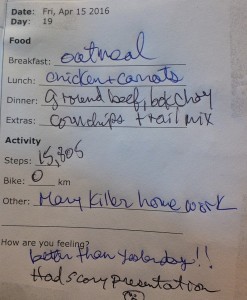 Date: Fri, Apr 15 2016
Day: 19
Food
Breakfast: oatmeal
Lunch: chicken + carrots
Dinner: ground beef, bok choy
Extras: corn chips + trail mix
Activity
Steps: 15,805
Bike: 0 km
Other: Many killer home work
How are you feeling?
better than yesterday!!
Had scary presentation